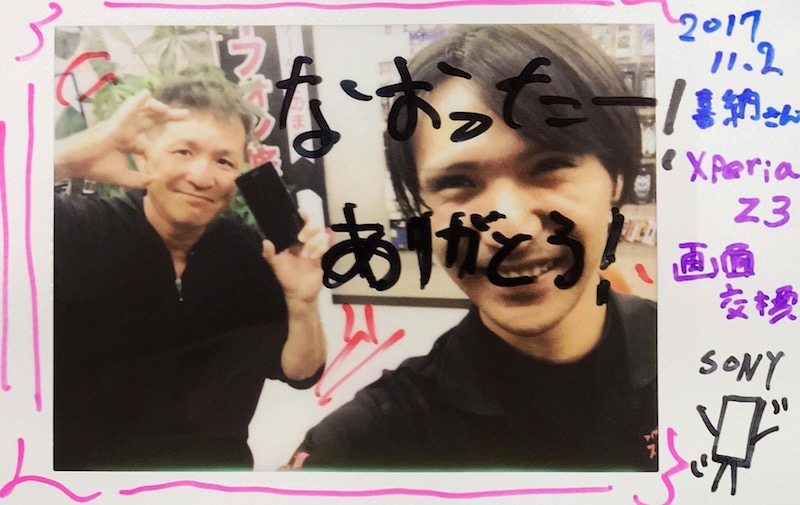 なおったー!
ありがとう!
2017
11.2
喜納さん
Xperia
Z3
画面
交換
SONY